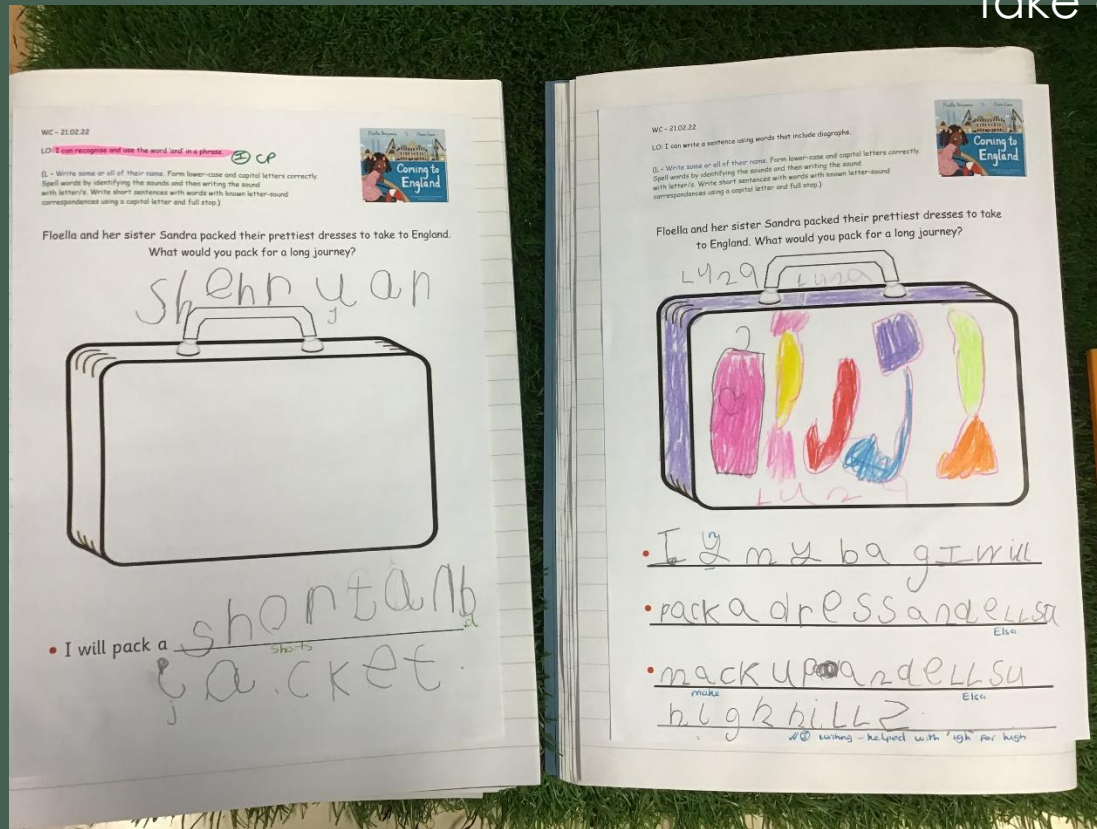 Take
WC - 21.02.22
LO: I can recognise and use the word 'and' in a phrase. I CP
(L - Write some or all of their name. Form lower-case and capital letters correctly.
Spell words by identifying the sounds and then writing the sound
with letter/s. Write short sentences with words with known letter-sound
correspondences using a capital letter and full stop.)
Coming to
England
Floella and her sister Sandra packed their prettiest dresses to take to England.
What would you pack for a long journey?
shehryan
y
• I will pack a shontanb
shorts d
jacket.
j
WC - 21.02.22
LO: I can write a sentence using words that include diagraphs.
(L - Write some or all of their name. Form lower-case and capital letters correctly.
Spell words by identifying the sounds and then writing the sound
with letter/s. Write short sentences with words with known letter-sound
correspondences using a capital letter and full stop.)
Floella Benjamin
Coming to
England
Floella and her sister Sandra packed their prettiest dresses to take
to England. What would you pack for a long journey?
• I my bag I will
• pack a dress and eLLsa
Elsa
• mack up and eLLsu
make Elsa
high hiLLz
writing - helped with 'igh' for high